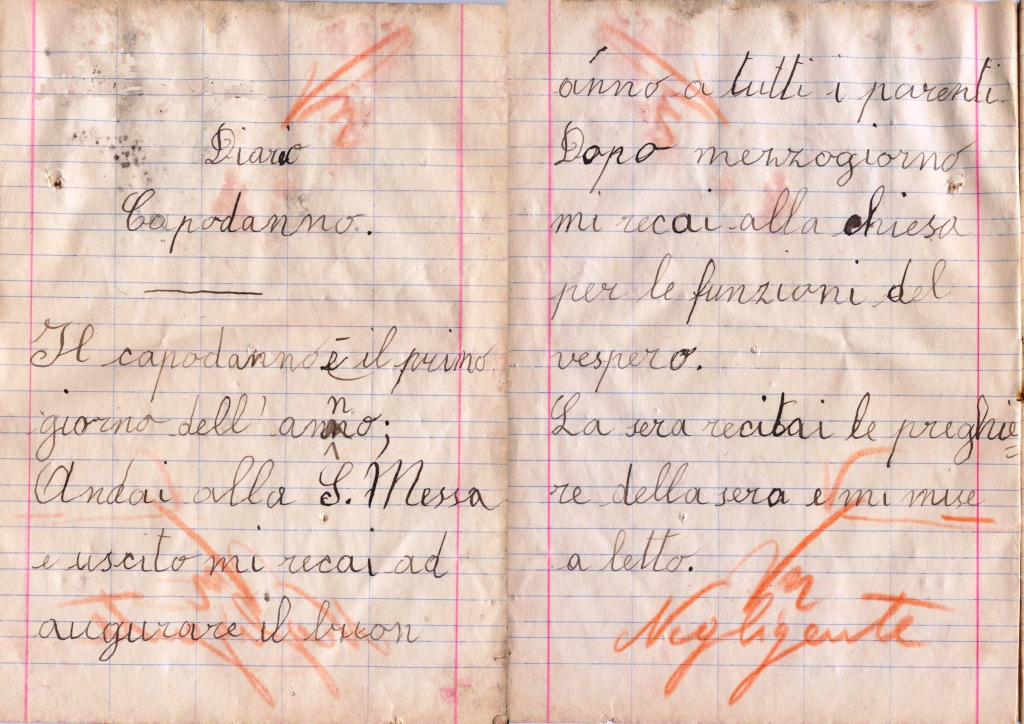 Diario
Capodanno.
Il capodanno è il primo
giorno dell' anno;
Andai alla S. Messa
e uscito mi recai ad
augurare il buon
ánno a tutti i parenti.
Dopo mezzogiorno
mi recai alla chiesa
per le funzioni del
vespero.
La sera recitai le preghie=
re della sera e mi mise
a letto.
Negligente